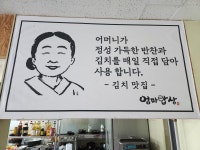 어머니가
정성 가득한 반찬과
김치를 매일 직접 담아
사용 합니다.
- 김치 맛집 -
엄마밥상